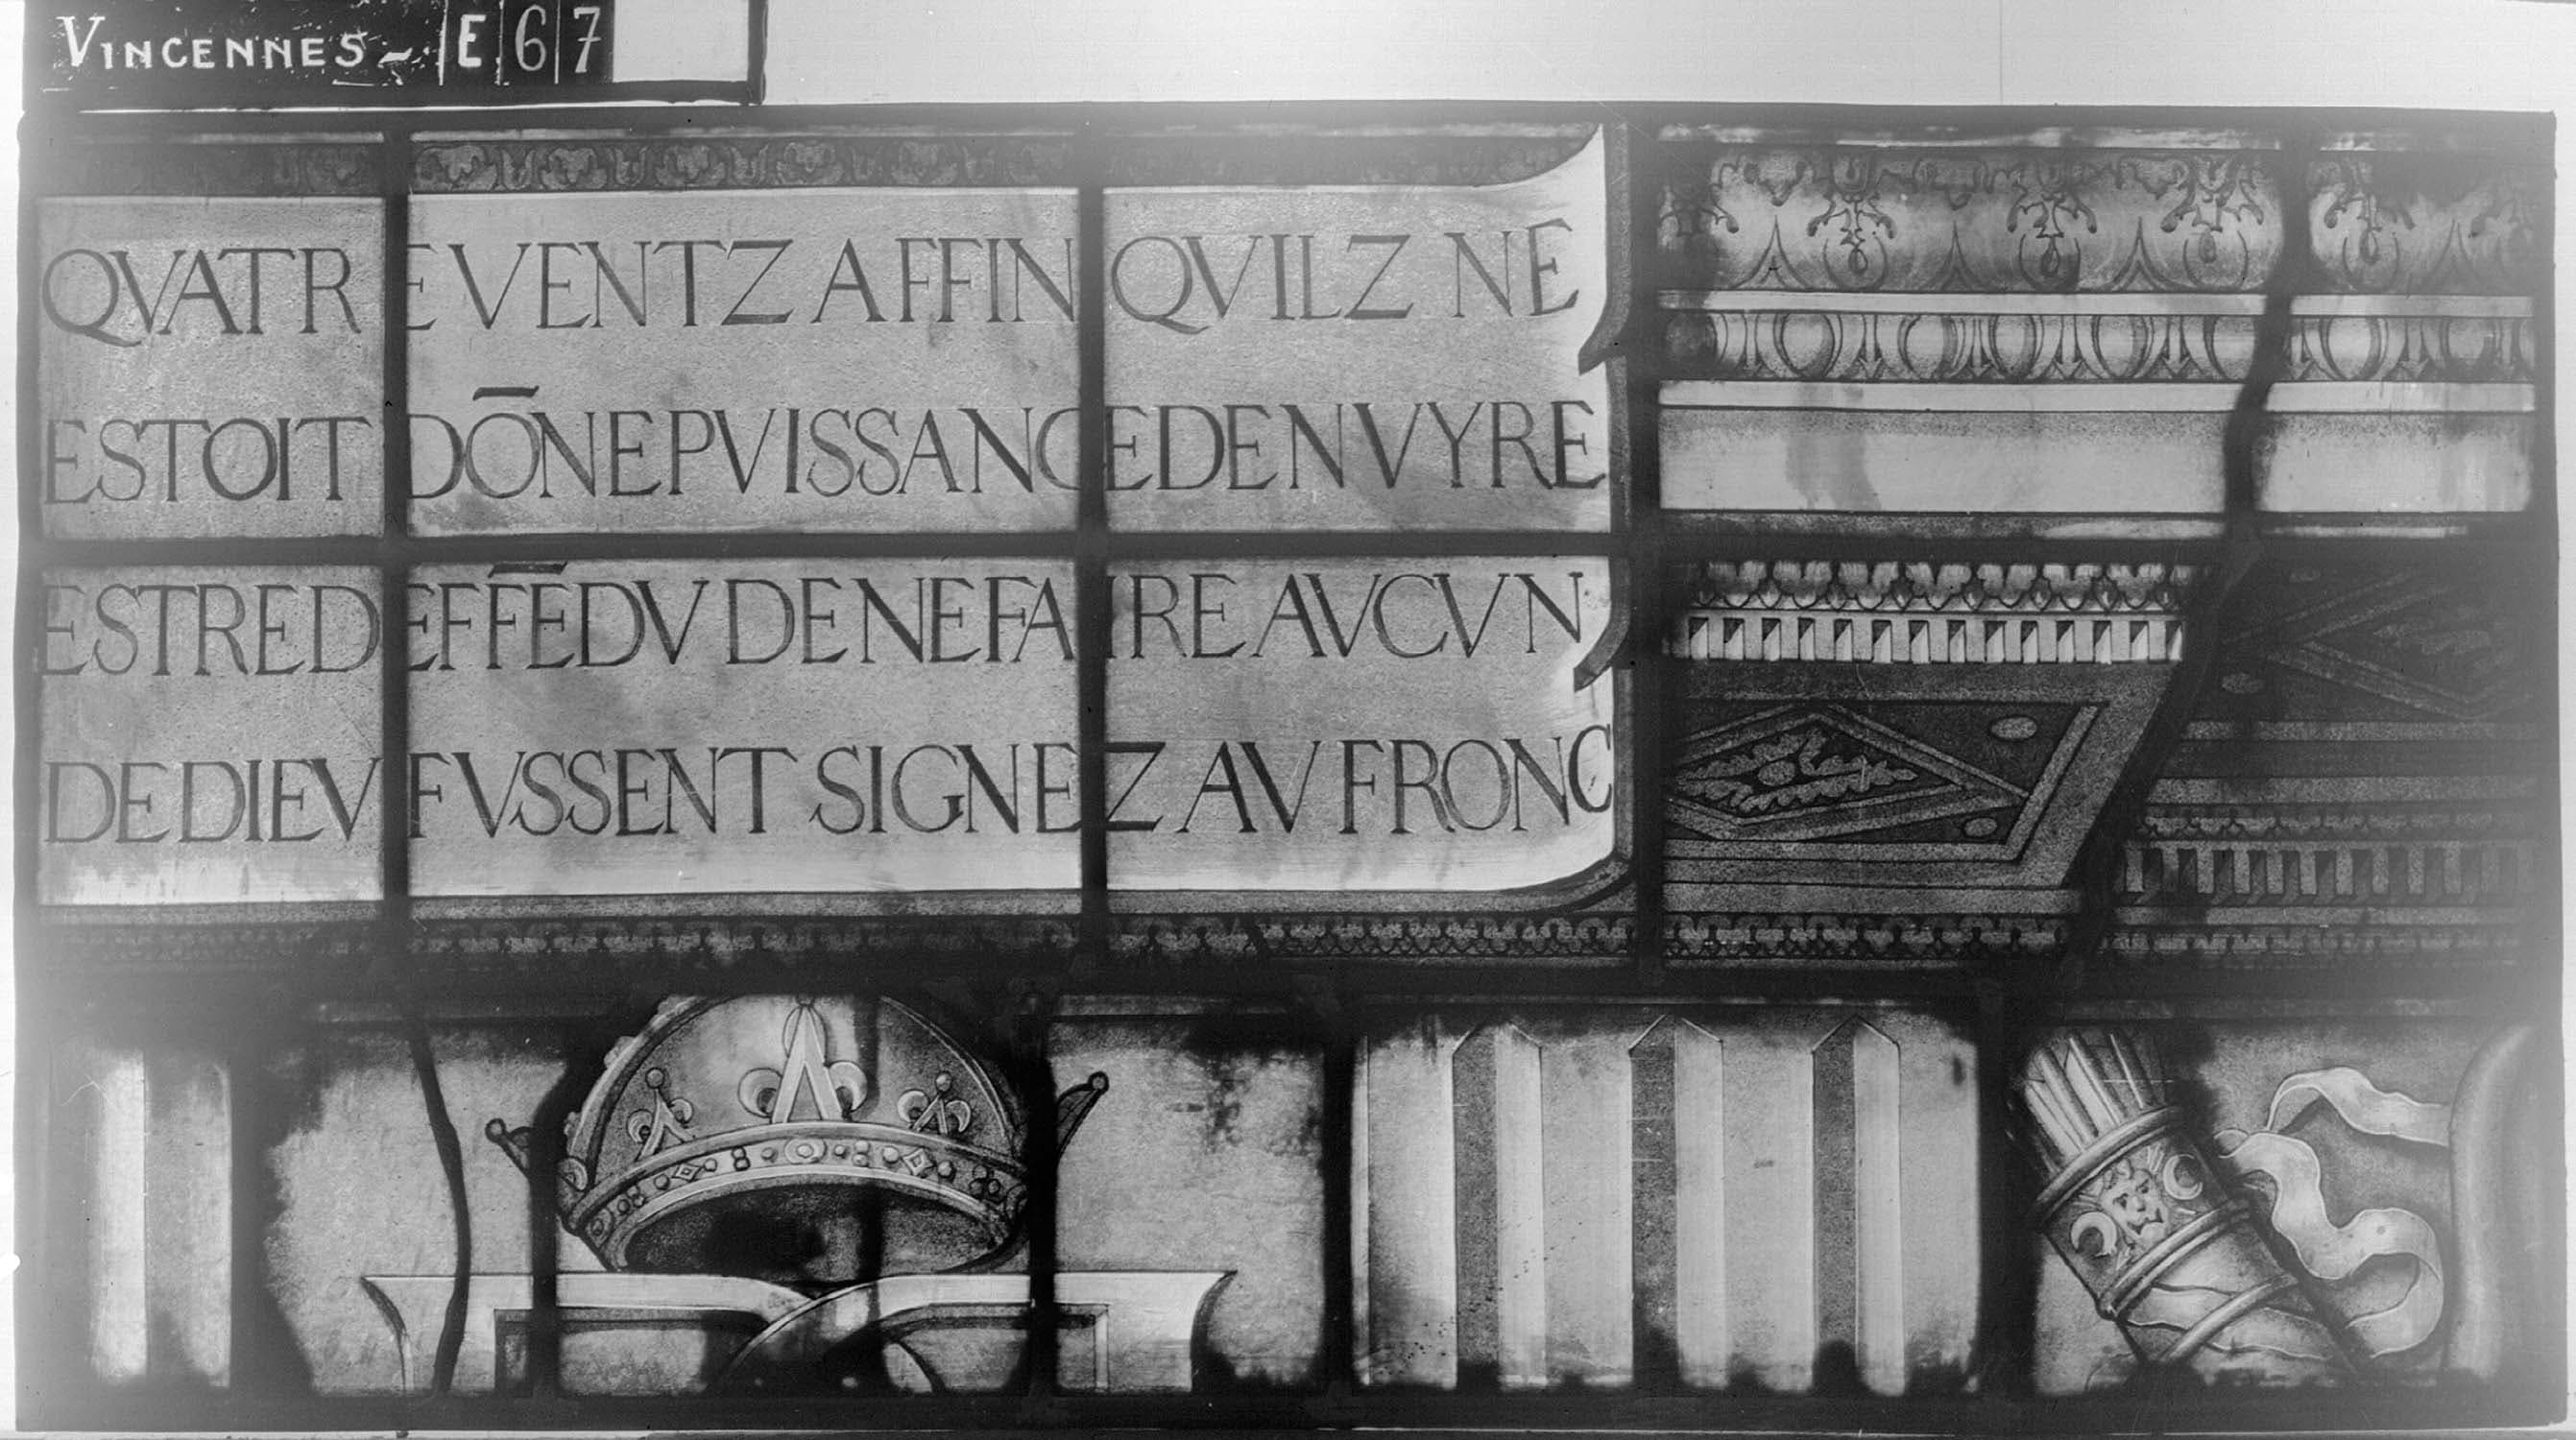 VINCENNES - E 67
QVATRE VENTZ AFFIN QVILZ NE
ESTOIT DŌNE PVISSANCE DENVYRE
ESTRE DEFFĒDV DE NE FAIRE AVCVN
DE DIEV FVSSENT SIGNEZ AV FRONC